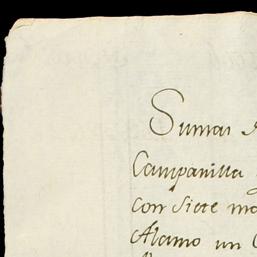 Sumas
Campanilla
con siete
Alamo un